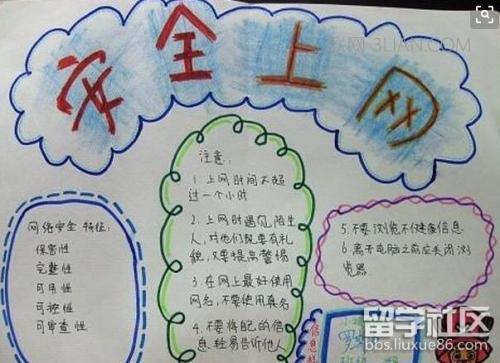 安全上网
网络安全 特征:
保密性
完整性
可用性
可控性
可审查性
注意:
1. 上网时间不超
过一个小时
2. 上网时遇见陌生
人,对他们既要有礼
貌,又要提高警惕
3. 在网上最好使用
网名,不要使用真名
4. 不要将自己的信
息轻易告诉他人
5. 不要浏览不健康信息
6. 离开电脑之前应关闭浏
览器
信息
3LIAN.COM
留学社区
bbs.liuxue86.com